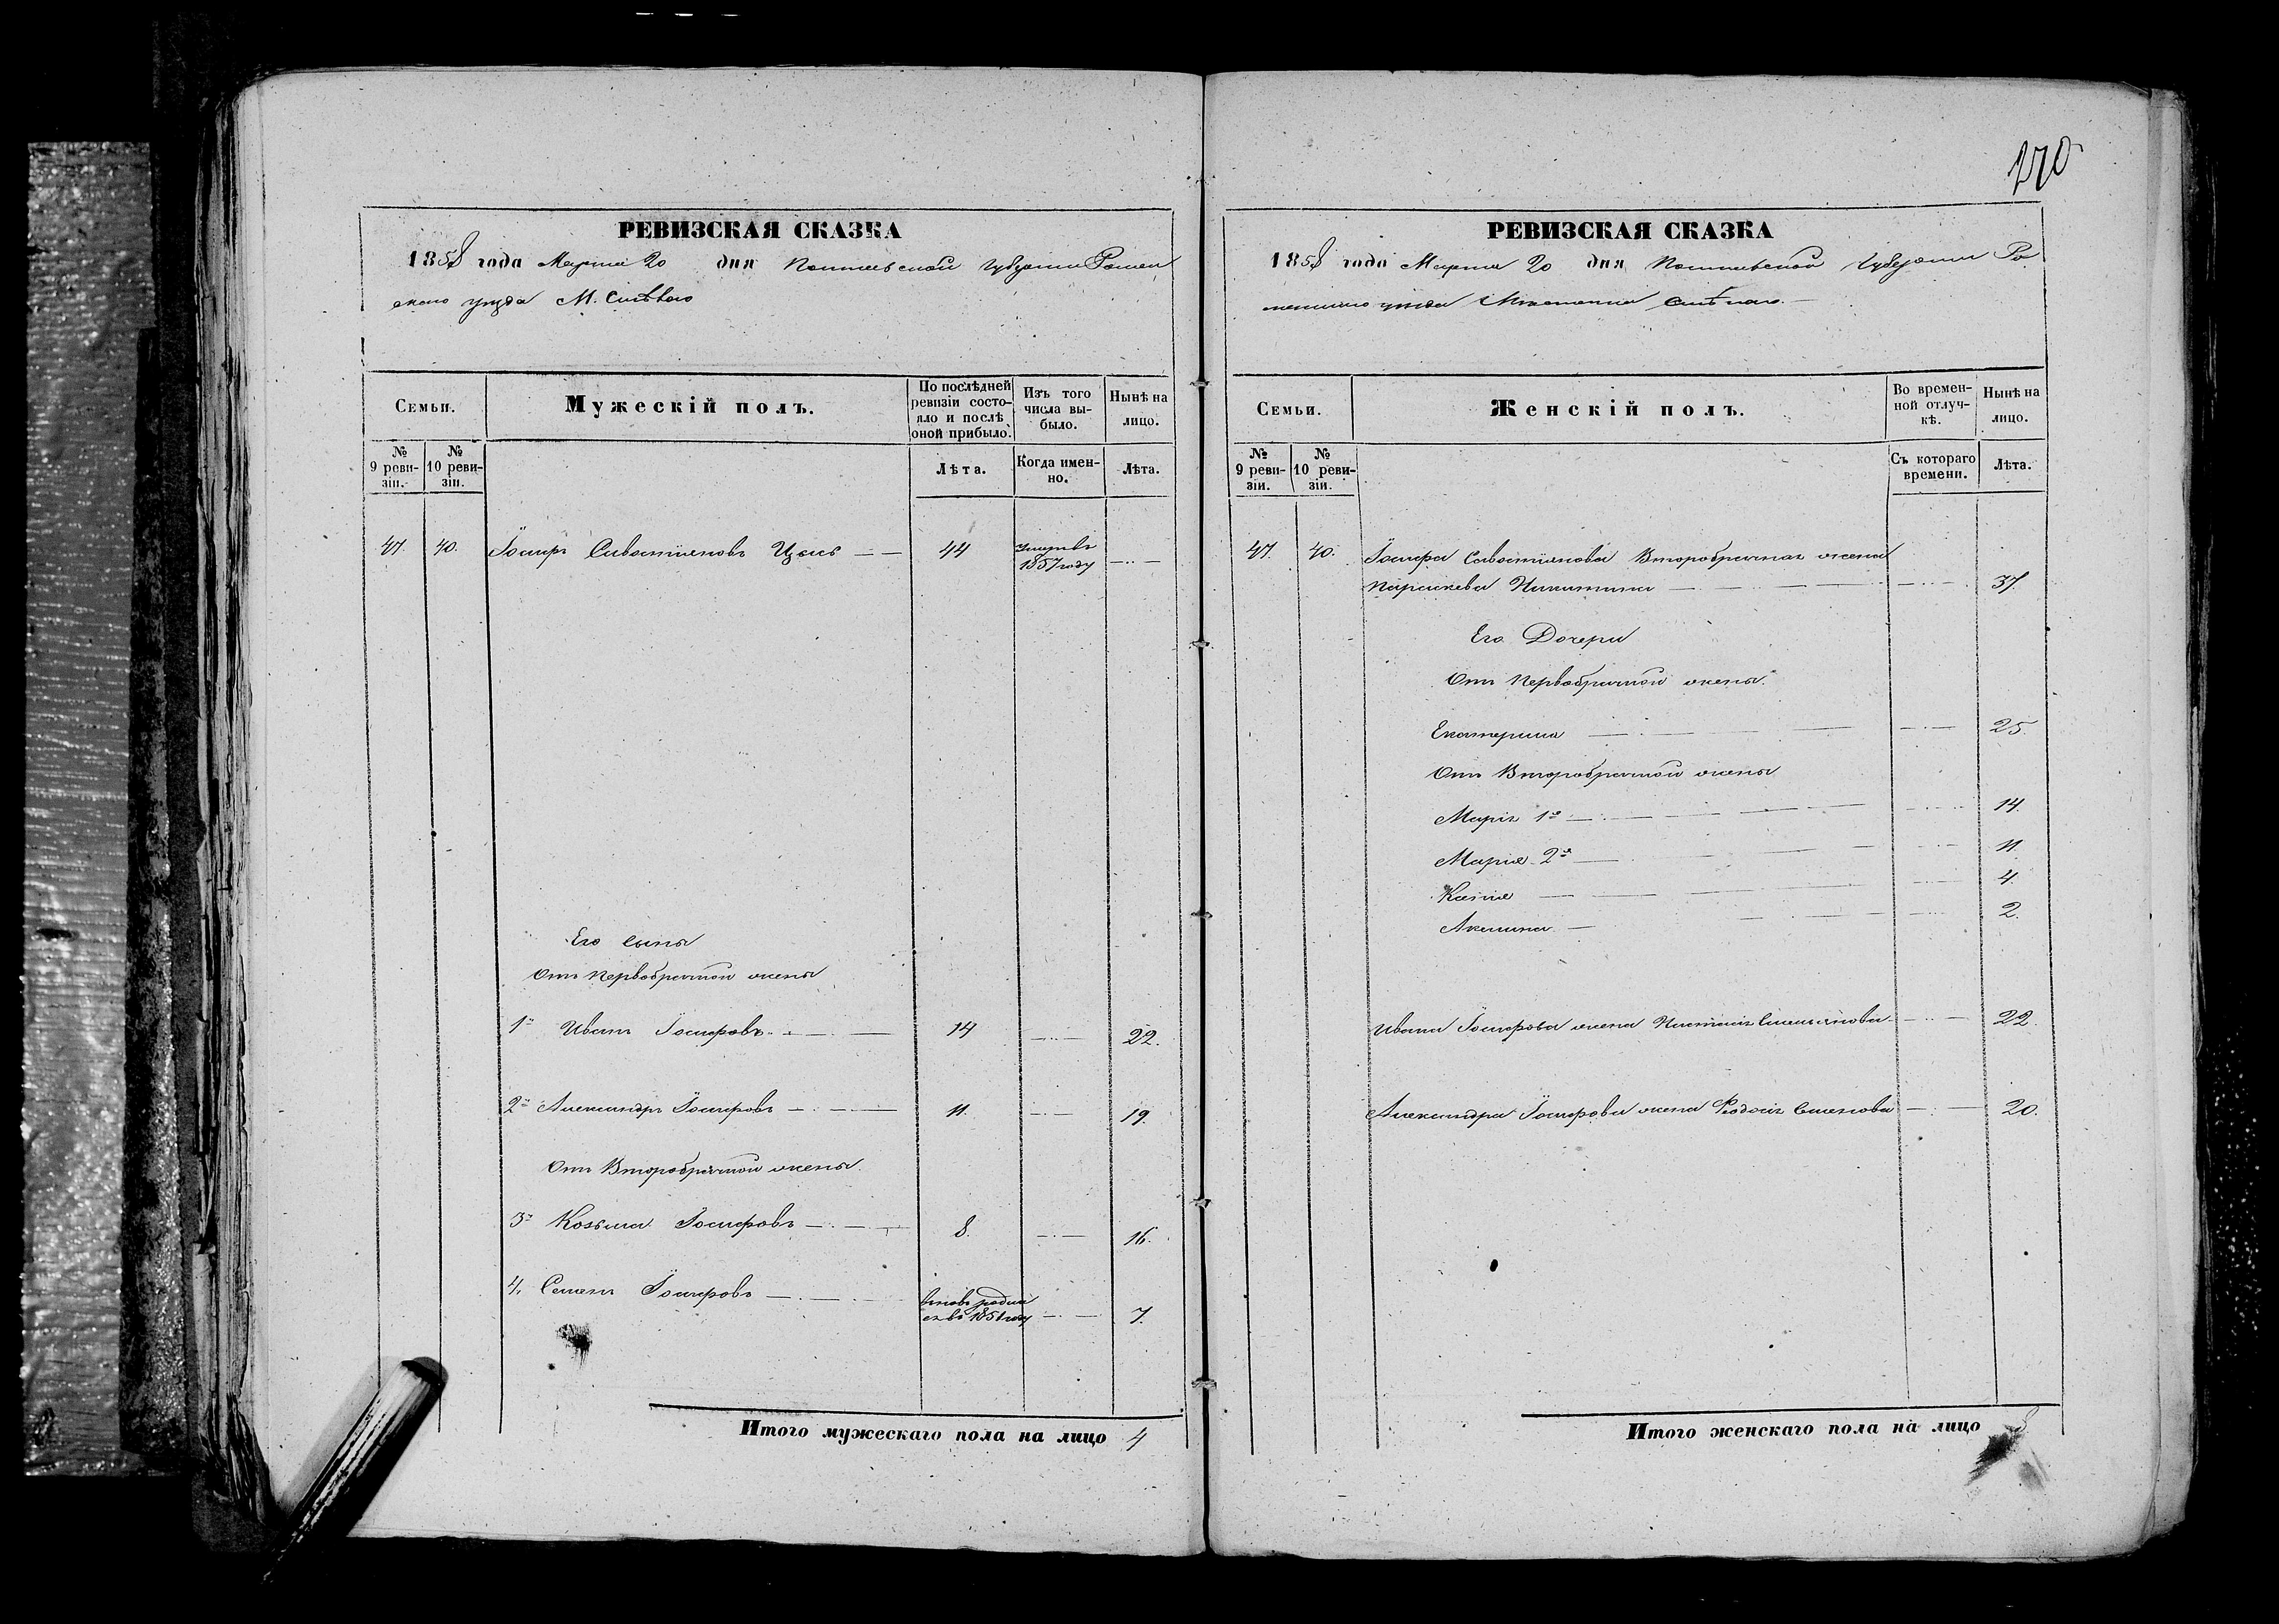 РЕВИЗСКАЯ СКАЗКА
1858 года Марта 20 дня Полтавской Губернии Ромен
скаго уезда М. Смѣлаго
Семьи.
Мужескій полъ.
По послѣдней ревизіи состояло и послѣ оной прибыло.
Изъ того числа выбыло.
Нынѣ на лицо.
№ 9 ревизіи.
№ 10 ревизіи.
Лѣта.
Когда именно.
Лѣта.
47. 40. Іосифъ Савостіяновъ 44 умеръ въ
1857 году
Его сыны
отъ первобрачной жены
1й Иванъ Іосифовъ 14 22.
2й Александръ Іосифовъ 11. 19.
Отъ Второбрачной жены.
3й Козьма Іосифовъ 8. 16.
4. Семенъ Іосифовъ вновь родил
ся въ 1851 году 7.
Итого мужескаго пола на лицо 4
170
РЕВИЗСКАЯ СКАЗКА
1858 года Марта 20 дня Полтавской Губернии Ро
менскаго уезда Местечка Смѣлаго.
Семьи.
Женскій полъ.
Во временной отлучкѣ.
Нынѣ на лицо.
№ 9 ревизіи.
№ 10 ревизіи.
Съ котораго времени.
Лѣта.
47. 40. Іосифа Савостіянова Второбрачная жена
Параскева Никитина 37.
Его Дочери
Отъ Первобрачной жены.
Екатерина 25.
Отъ Второбрачной жены
Марія 1я 14.
Марія 2я 11.
Ксенія 4.
Акилина 2.
Ивана Іосифова жена Настасія 22.
Александра Іосифова жена Феодосія Семенова 20.
Итого женскаго пола на лицо 8